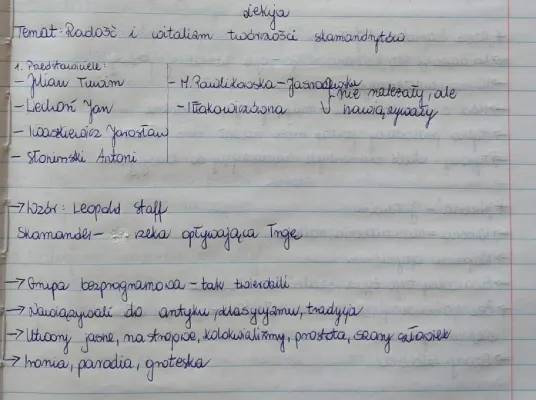 Lekcja
Temat: Radość i witalizm twórczości skamandrytów
1. Przedstawiciele:
- Julian Tuwim
- Lechoń Jan
- Iwaszkiewicz Jarosław
- Słonimski Antoni
- M. Pawlikowska - Jasnorzewska
- Iłłakowiczówna
nie należały, ale
nawiązywały
→ Wzór: Leopold Staff
Skamander - rzeka opływająca Troję
→ Grupa bezprogramowa - tak twierdzili
→ Nawiązywali do antyku, klasycyzmu, tradycja
→ Utwory jasne, nastrojowe, kolokwializmy, prostota, szary człowiek
→ Ironia, parodia, groteska